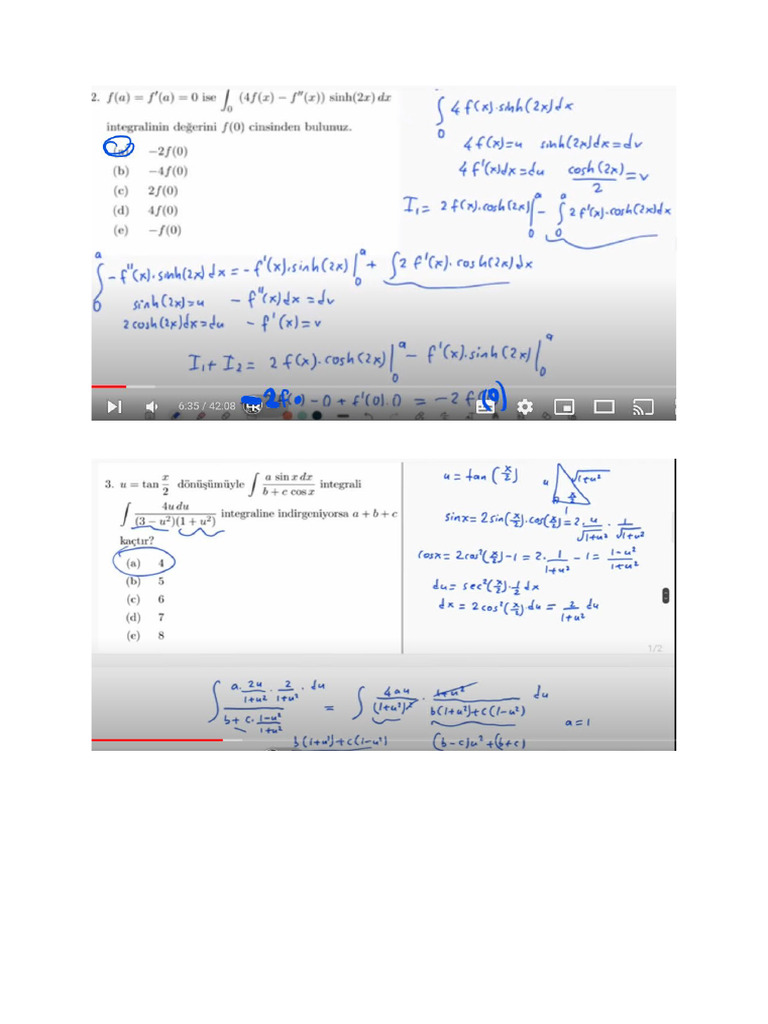 2. f(a) = f′(a) = 0 ise ∫₀ (4f(x) − f″(x)) sinh(2x) dx
integralinin değerini f(0) cinsinden bulunuz.
−2f(0)
(b) −4f(0)
(c) 2f(0)
(d) 4f(0)
(e) −f(0)
∫₀ 4f(x).sinh(2x)dx
4f(x)=u sinh(2x)dx=dv
4f'(x)dx=du cosh(2x)/2 = v
I₁= 2f(x).cosh(2x)|₀ᵃ − ∫₀ᵃ 2f'(x).cosh(2x)dx
∫₀ᵃ −f"(x).sinh(2x)dx = −f'(x).sinh(2x)|₀ᵃ + ∫2f'(x).cosh(2x)dx
sinh(2x)=u −f"(x)dx=dv
2cosh(2x)dx=du −f'(x)=v
I₁+I₂ = 2f(x).cosh(2x)|₀ᵃ − f'(x).sinh(2x)|₀ᵃ
−2f(0)−0+f'(0).0 = −2f(0)
6:35 / 42:08
3. u = tan x/2 dönüşümüyle ∫ a sin x dx / b + c cos x integrali
∫ 4u du / (3 − u²)(1 + u²) integraline indirgeniyorsa a + b + c
kaçtır?
(a) 4
(b) 5
(c) 6
(d) 7
(e) 8
u=tan(x/2) u √1+u² x/2 1
sinx=2sin(x/2).cos(x/2)=2.u/√1+u² . 1/√1+u²
cosx=2cos²(x/2)−1=2.1/1+u² −1= 1−u²/1+u²
du=sec²(x/2).1/2 dx
dx=2cos²(x/2)du= 2/1+u² du
1/2
∫ a.2u/1+u² . 2/1+u² . du / b+c.1−u²/1+u² = ∫ 4au/(1+u²)² . 1+u²/b(1+u²)+c(1−u²) du a=1
b(1+u²)+c(1−u²) (b−c)u²+(b+c)